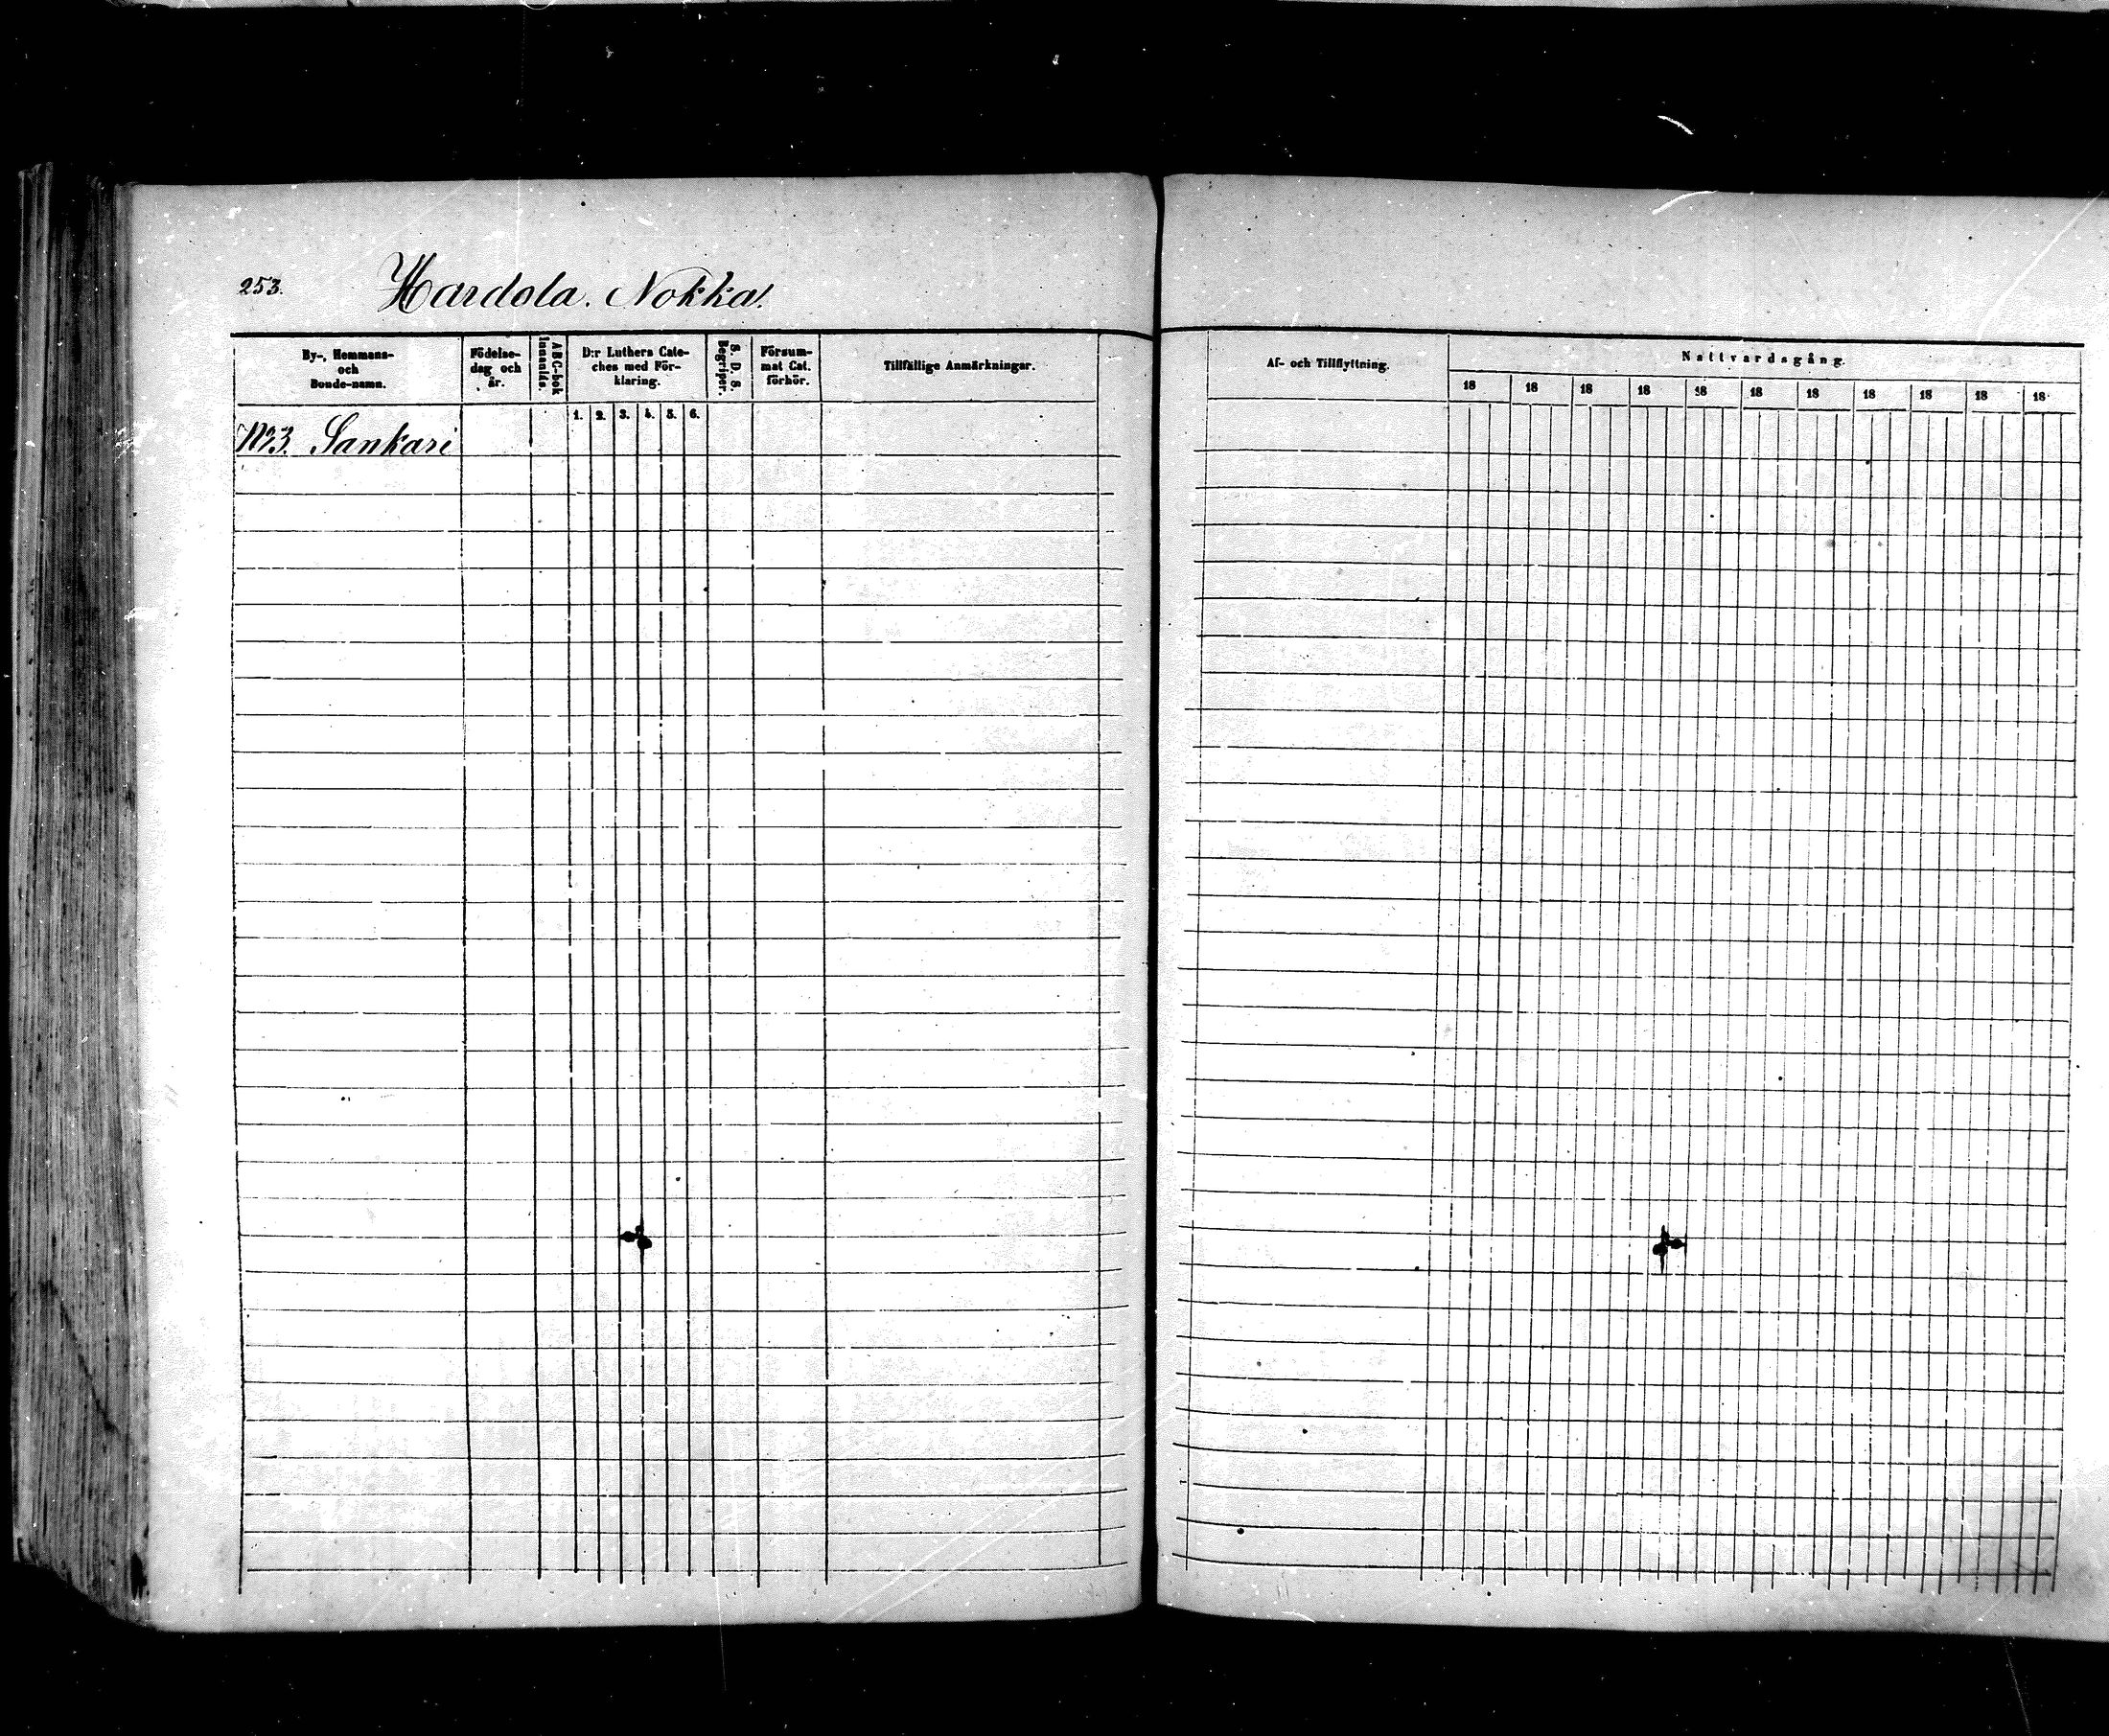 253. Hardola. Nokka.
By-, Hemmans- och Bonde-namn.
Födelse-dag och år.
ABC-bok innanläs.
D:r Luthers Cate-ches med För-klaring.
S. D. S. Begriper.
Försum-mat Cat. förhör.
Tillfällige Anmärkningar.
1. 2. 3. 4. 5. 6.
N:3. Sankari
Af- och Tillflyttning.
Nattvardsgång.
18 18 18 18 18 18 18 18 18 18 18